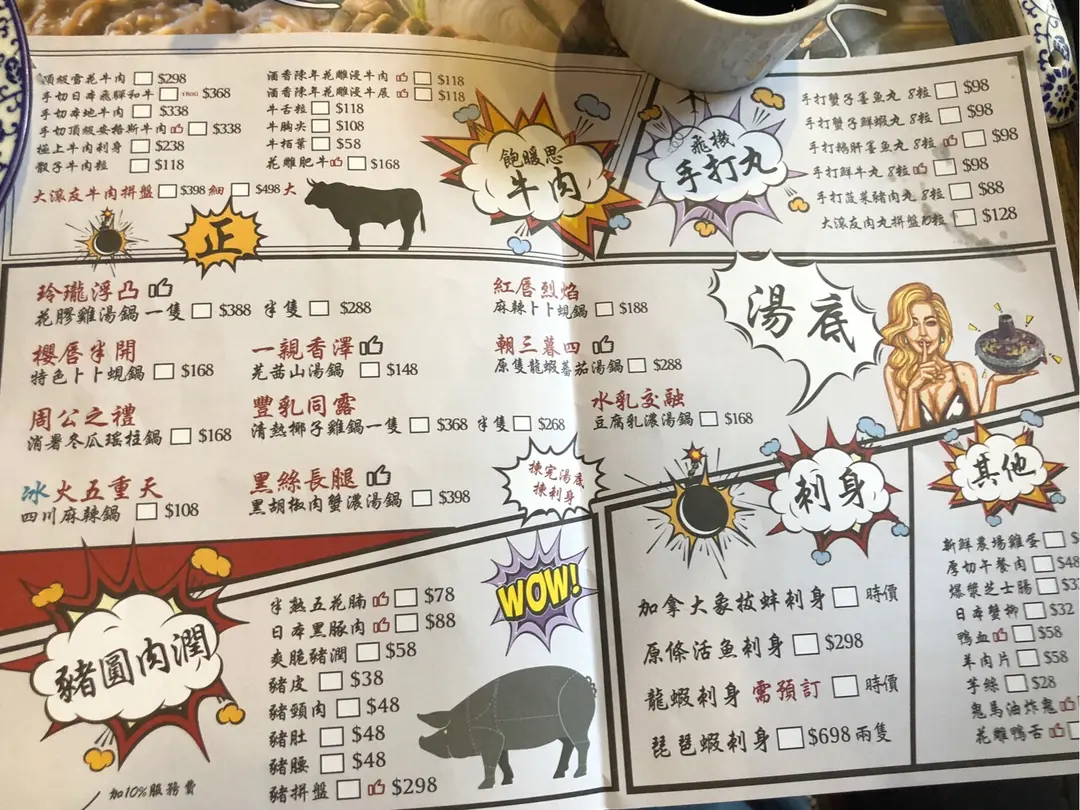 頂級雪花牛肉 $298
手切日本飛騨和牛 $368
手切本地牛肉 $338
手切頂級安格斯牛肉 $338
極上牛肉刺身 $238
骰子牛肉粒 $118
大滾友牛肉拼盤 $398 細 $498 大
正
酒香陳年花雕浸牛肉 $118
酒香陳年花雕浸牛展 $118
牛舌粒 $118
牛胸尖 $108
牛栢葉 $58
花雕肥牛 $168
飽暖思
牛肉
飛機
手打丸
手打蟹子墨魚丸 8粒 $98
手打蟹子鮮蝦丸 8粒 $98
手打鵝肝墨魚丸 8粒 $98
手打鮮牛丸 8粒 $98
手打菠菜豬肉丸 8粒 $88
大滾友肉丸拼盤 $128
玲瓏浮凸
花膠雞湯鍋 一隻 $388 半隻 $288
紅唇烈焰
麻辣卜卜蜆鍋 $188
櫻唇半開
特色卜卜蜆鍋 $168
一親香澤
芫茜山湯鍋 $148
朝三暮四
原隻龍蝦蕃茄湯鍋 $288
周公之禮
消暑冬瓜瑤柱鍋 $168
豐乳同露
清熱椰子雞鍋一隻 $368 半隻 $268
水乳交融
豆腐乳濃湯鍋 $168
冰火五重天
四川麻辣鍋 $108
黑絲長腿
黑胡椒肉蟹濃湯鍋 $398
揀完湯底
揀刺身
湯底
豬圓肉潤
加10%服務費
半熟五花腩 $78
日本黑豚肉 $88
爽脆豬潤 $58
豬皮 $38
豬頸肉 $48
豬肚 $48
豬腰 $48
豬拼盤 $298
WOW!
刺身
加拿大象拔蚌刺身 時價
原條活魚刺身 $298
龍蝦刺身 需預訂 時價
琵琶蝦刺身 $698 兩隻
其他
新鮮農場雞蛋 $
厚切午餐肉 $48
爆漿芝士腸 $3
日本蟹柳 $32
鴨血 $58
羊肉片 $58
芋絲 $28
鬼馬油炸鬼
花雕鴨舌